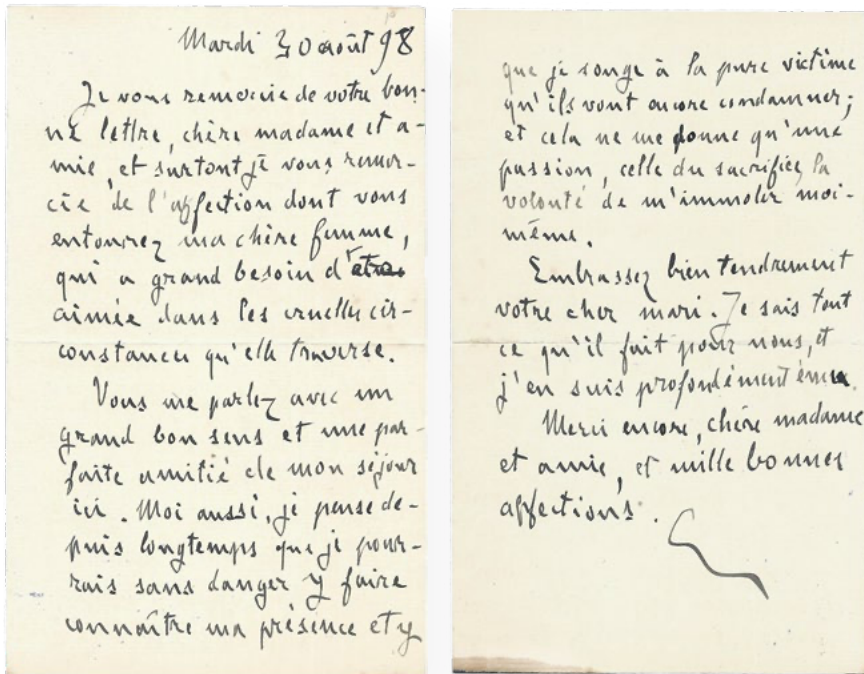 Mardi 30 août 98
Je vous remercie de votre bon-
ne lettre, chère madame et a-
mie, et surtout je vous remer-
cie de l'affection dont vous
entourez ma chère femme,
qui a grand besoin d'être
aimée dans les cruelles cir-
constances qu'elle traverse.
Vous me parlez avec un
grand bon sens et une par-
faite amitié de mon séjour
ici. Moi aussi, je pense de-
puis longtemps que je pour-
rais sans danger y faire
connaître ma présence et y
que je songe à la pure victime
qu'ils vont encore condamner;
et cela ne me donne qu'une
passion, celle du sacrifice, la
volonté de m'immoler moi-
même.
Embrassez bien tendrement
votre cher mari. Je sais tout
ce qu'il fait pour nous, et
j'en suis profondément ému.
Merci encore, chère madame
et amie, et mille bonnes
affections.